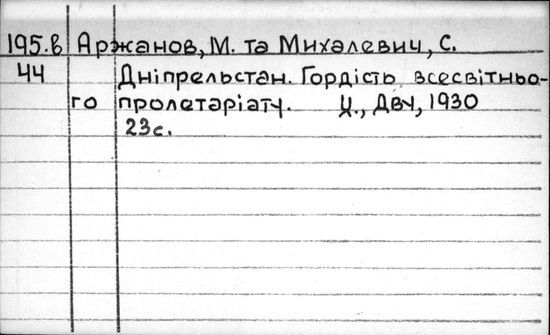 195.в Аржанов, М. та Михалевич, С.
44 Дніпрельстан. Гордість всесвітньо-
го пролетаріату. Ц., Двч, 1930
23с.